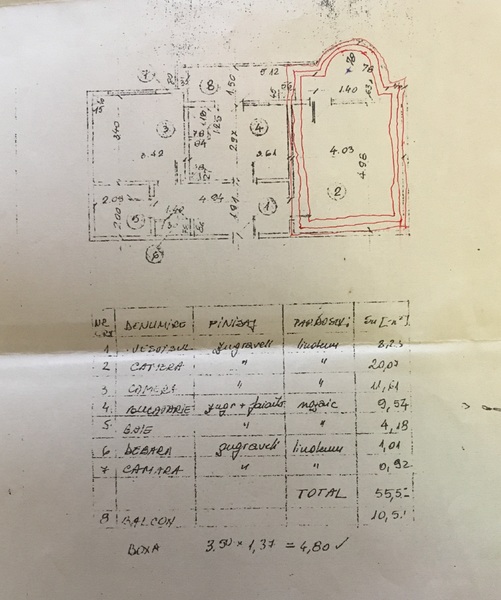 7
8
5.12
1.50
78
1.40
3
4
3.40
3.42
2.97
3.61
4.03
4.96
2.09
4.94
1
2
2.00
5
1.91
6
NR DENUMIRE FINISAJ PARDOSELI Su [m²]
1 VESTIBUL zugraveli linoleum 8,23
2 CAMERA " " 20,07
3 CAMERA " " 11,61
4 BUCATARIE zugr + faianta mozaic 9,54
5 BAIE " " 4,18
6 DEBARA zugraveli linoleum 1,01
7 CAMARA " " 0,92
TOTAL 55,5
8 BALCON 10,51
BOXA 3,50 × 1,37 = 4,80 ✓